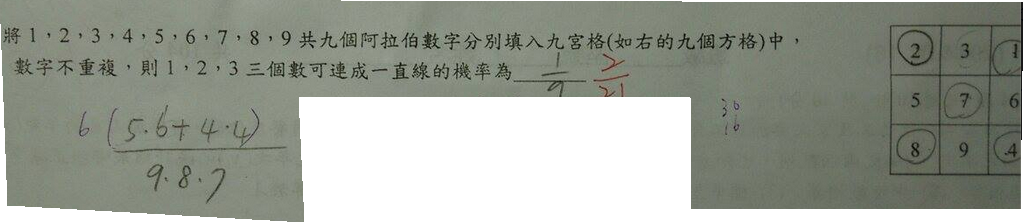 將1，2，3，4，5，6，7，8，9共九個阿拉伯數字分別填入九宮格(如右的九個方格)中，
數字不重複，則1，2，3三個數可連成一直線的機率為 1/9 2/21
6(5·6+4·4)
9·8·7
30
16
2 3 1
5 7 6
8 9 4